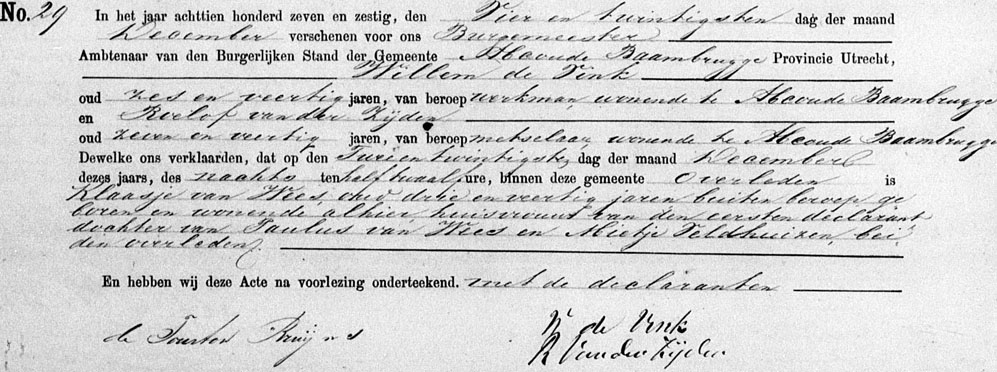 No. 29 In het jaar achttien honderd zeven en zestig, den Vier en twintigsten dag der maand
December verschenen voor ons Burgemeester
Ambtenaar van den Burgerlijken Stand der Gemeente Abcoude Baambrugge Provincie Utrecht,
Willem de Vink
oud zes en veertig jaren, van beroep werkman wonende te Abcoude Baambrugge
en Roelof van der Zijden
oud zeven en veertig jaren, van beroep metselaar wonende te Abcoude Baambrugge
Dewelke ons verklaarden, dat op den Twee en twintigste dag der maand December
dezes jaars, des nachts ten half twaalf ure, binnen deze gemeente overleden is
Klaasje van Wees, oud drie en veertig jaren buiten beroep ge
boren en wonende alhier, huisvrouw van den eersten declarant
dochter van Paulus van Wees en Mietje Veldhuizen, bei
den overleden.
En hebben wij deze Acte na voorlezing onderteekend. met de declaranten
W de Vink
R Van der Zijden